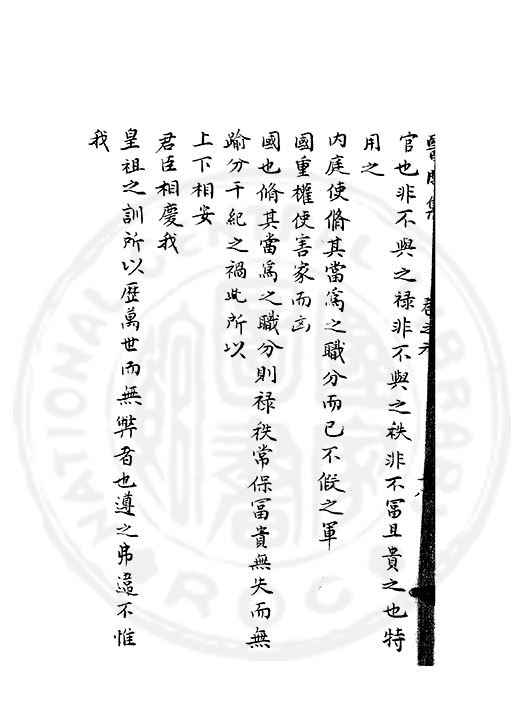 官也非不與之禄非不與之秩非不冨且貴之也特
用之
内庭使脩其當為之職分而已不假之軍
國重權使害家而凶
國也脩其當為之職分則禄秩常保冨貴無失而無
踰分干紀之禍此所以
上下相安
君臣相慶我
皇祖之訓所以歴萬世而無弊者也遵之弗違不惟
我
NATIONAL CENTRAL LIBRARY
R.O.C.